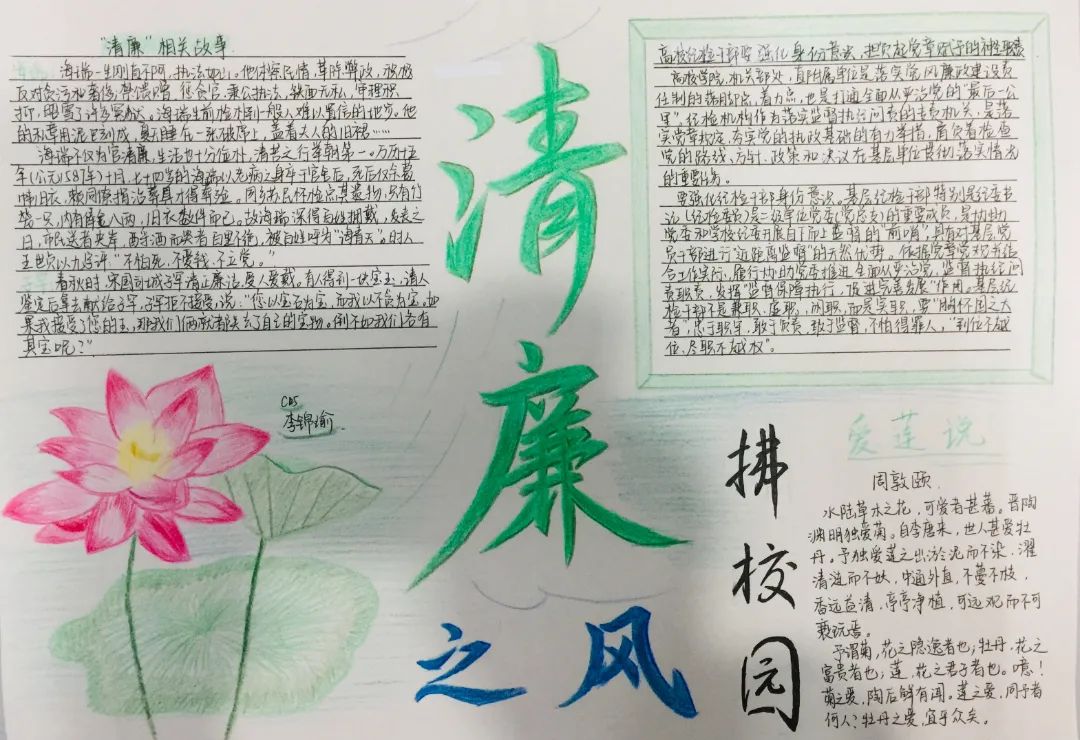 "清廉"相关故事
海瑞一生刚直不阿，执法如山。他体察民情，革除弊政，积极
反对贪污和奢侈
折，昭雪了许多冤狱。海瑞生前检朴到一般人难以置信的地步。他
的床帏用泥巴剥成，夏天睡在一张破席上，盖着夫人的旧裙……
海瑞不仅为官清廉，生活也十分俭朴，清苦之行举朝第一。万历十五
年（公元1587年）十月，七十四岁的海瑞以老病之身卒于官舍后，死后仅余著
帏旧衣，赖同僚捐治葬具才得奔殓。同乡苏民怀检点其装物，只有竹
笼一只，内有俸金八两，旧衣数件而已。故海瑞深得百姓拥戴，发丧之
日，市民送者夹岸，两岸洒而哭者百里不绝，被百姓呼为"海青天"。时人
王世贞以九字评"不怕死，不爱钱，不立党。"
春秋时，宋国司城子罕清正廉洁，受人爱戴。有人得到一块宝玉，请人
鉴定后拿去献给子罕，子罕拒不接受，说："您以宝石为宝，而我以不贪为宝。如
果我接受了您的玉，那我们俩就都失去了自己的宝物。倒不如我们各有
其宝呢？"
清
廉
之风
拂
校
园
CDS
李锦瑜
高校纪检干部要强化身份意识，担负起党章赋予的神圣职责
高校学院、机关部处、直附属单位是落实党风廉政建设责
任制的落脚点、着力点，也是打通全面从严治党的"最后一公
里"。纪检机构作为落实监督执行问责的专责机关，是落
实党章规定，夯实党的执政基础的有力举措，肩负着检查
党的路线、方针、政策和决议在基层单位贯彻落实情况
的重要任务。
要强化纪检干部身份意识。基层纪检干部特别是纪委书
记（纪检委员）是二级单位党委（党总支）的重要成员，是协助
党委和学校纪委开展自下而上监督的"前哨"，具有对基层党
员干部进行"近距离监督"的天然优势。依据党章党规书结
合工作实行，履行协助党委推进全面从严治党，监督执行问
责职责，发挥"监督保障执行、促进完善发展"作用。基层纪
检干部不是兼职、虚职、闲职，而是实职，要"胸怀国之大
者，忠于职守，敢于负责，敢于监督，不怕得罪人，"到位不越
位、尽职不越权"。
爱莲说
周敦颐
水陆草木之花，可爱者甚蕃。晋陶
渊明独爱菊。自李唐来，世人甚爱牡
丹。予独爱莲之出淤泥而不染，濯
清涟而不妖，中通外直，不蔓不枝，
香远益清，亭亭净植，可远观而不可
亵玩焉。
予谓菊，花之隐逸者也；牡丹，花之
富贵者也；莲，花之君子者也。噫！
菊之爱，陶后鲜有闻。莲之爱，同予者
何人？牡丹之爱，宜乎众矣。